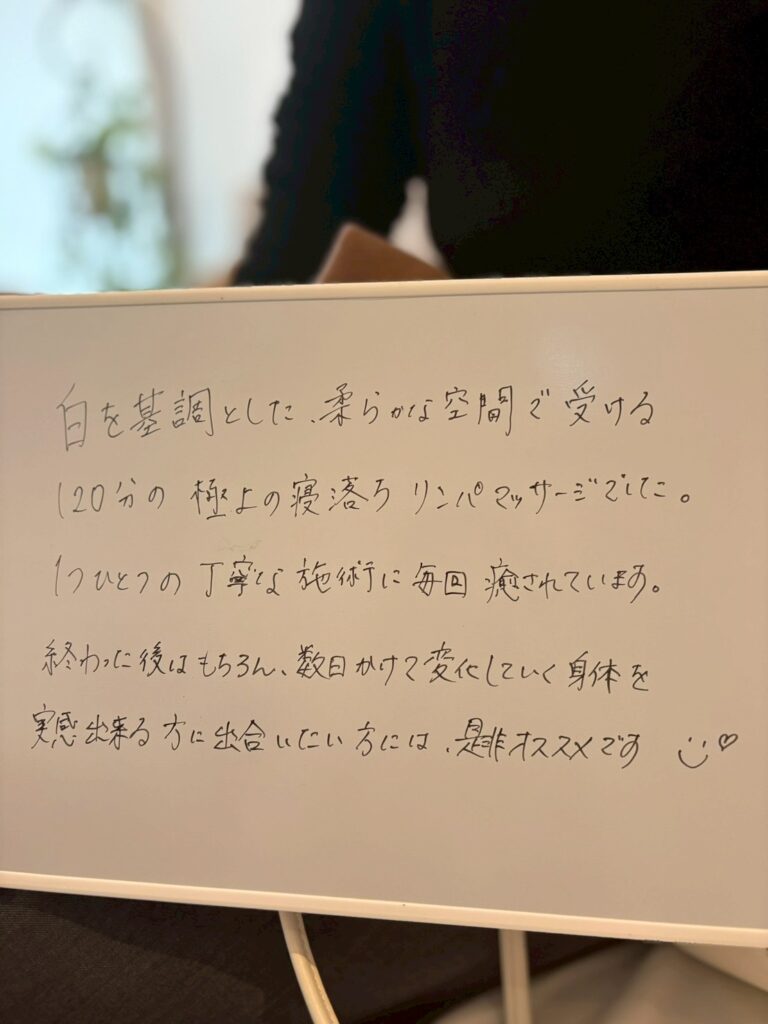 白を基調とした、柔らかな空間で受ける
120分の 極上の寝落ち リンパマッサージでした。
1つひとつの丁寧な施術に毎回 癒されています。
終わった後はもちろん、数日かけて変化していく身体を
実感出来る方に出合いたい方には、是非オススメです